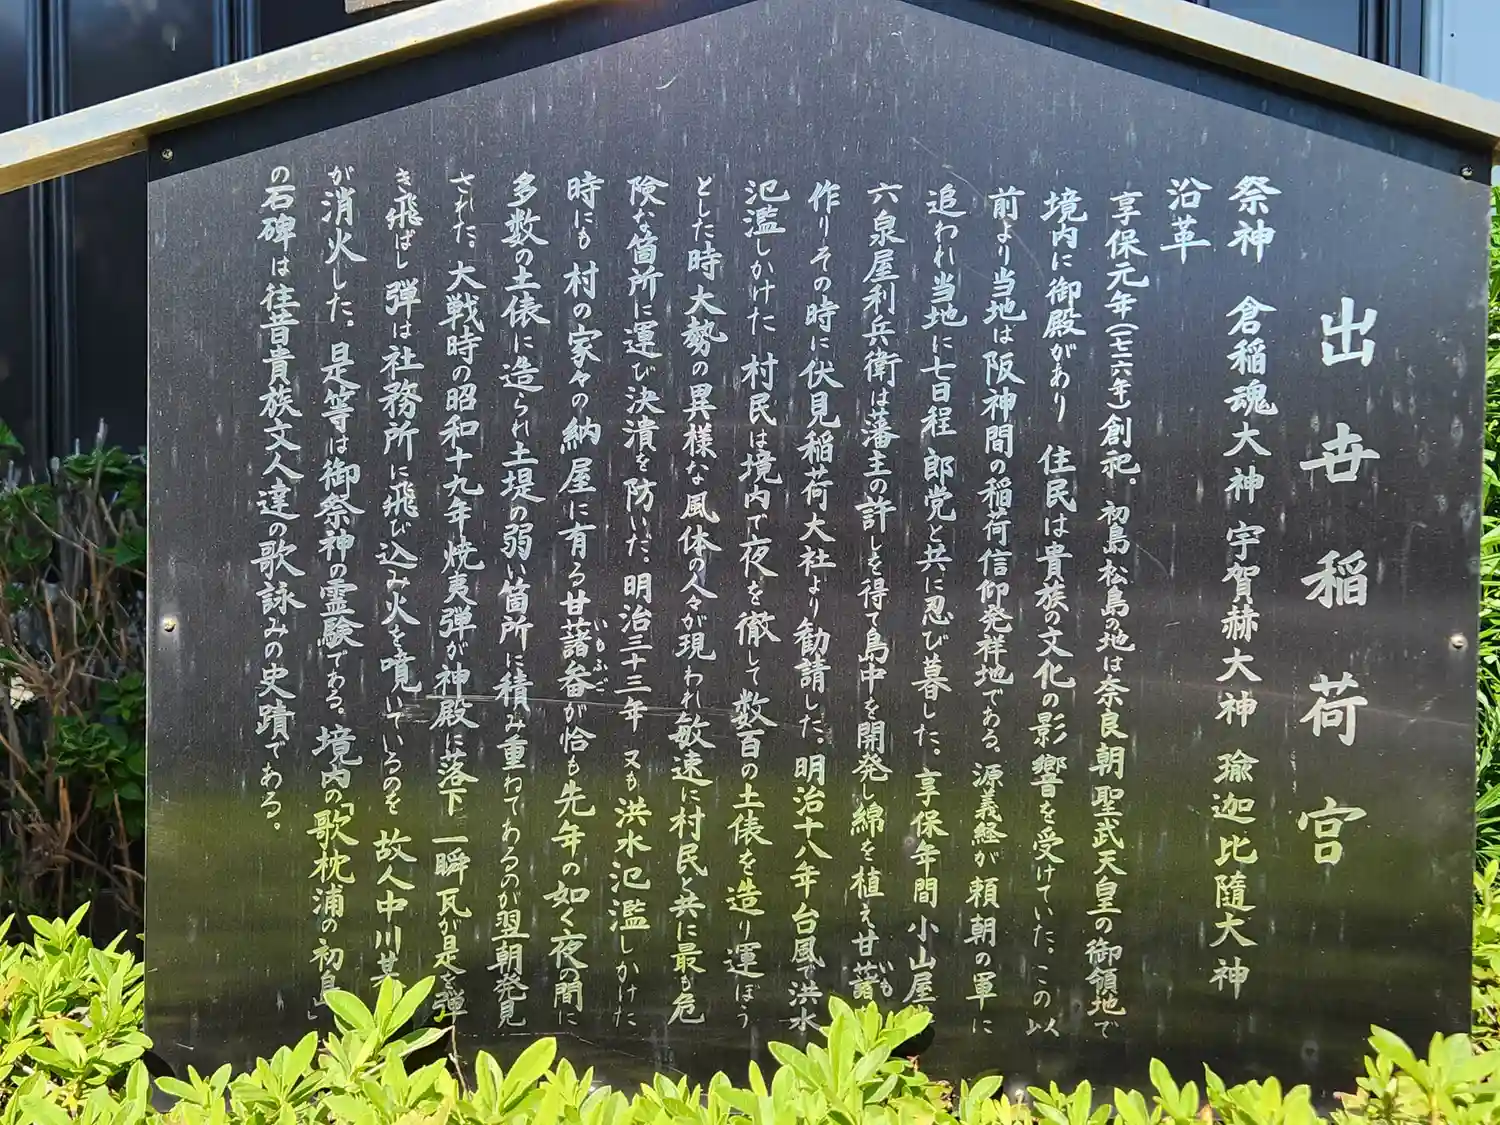 出世稲荷宮
祭神 倉稲魂大神 宇賀赫大神 瑜迦比隨大神
沿革
享保元年(七一六年)創祀。初島松島の地は奈良朝聖武天皇の御領地で
境内に御殿があり 住民は貴族の文化の影響を受けていた。この以
前より当地は阪神間の稲荷信仰発祥地である。源義経が頼朝の軍に
追われ当地に七日程 郎党と共に忍び暮した。享保年間 小山屋
六泉屋利兵衛は藩主の許しを得て島中を開発し綿を植え甘藷いも
作りその時に伏見稲荷大社より勧請した。明治十八年台風で洪水
氾濫しかけた 村民は境内で夜を徹して数百の土俵を造り運ぼう
とした時大勢の異様な風体の人々が現われ敏速に村民と共に最も危
険な箇所に運び決潰を防いだ。明治三十三年 又も洪水氾濫しかけた
時にも 村の家々の納屋に有る甘藷畚いもふごが恰も先年の如く夜の間に
多数の土俵に造られ土堤の弱い箇所に積み重ねてあるのが翌朝発見
された。大戦時の昭和十九年焼夷弾が神殿に落下 一瞬瓦が是を弾
き飛ばし弾は社務所に飛び込み火を噴いているのを 故人中川某
が消火した。是等は御祭神の霊験である。境内の「歌枕浦の初島」
の石碑は往昔貴族文人達の歌詠みの史蹟である。